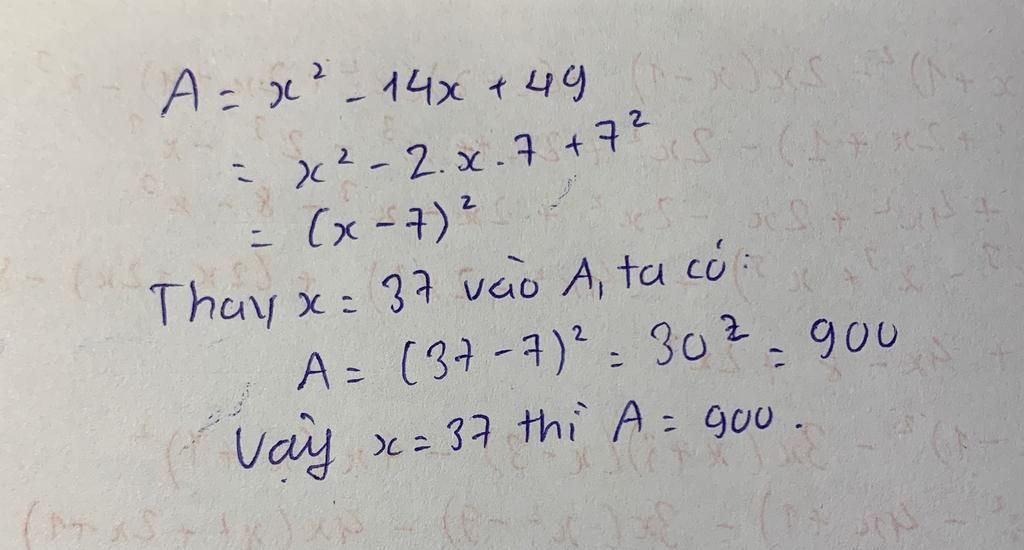 A = x² - 14x + 49
= x² - 2.x.7 + 7²
= (x - 7)²
Thay x = 37 vào A, ta có:
A = (37 - 7)² = 30² = 900
Vậy x = 37 thì A = 900.